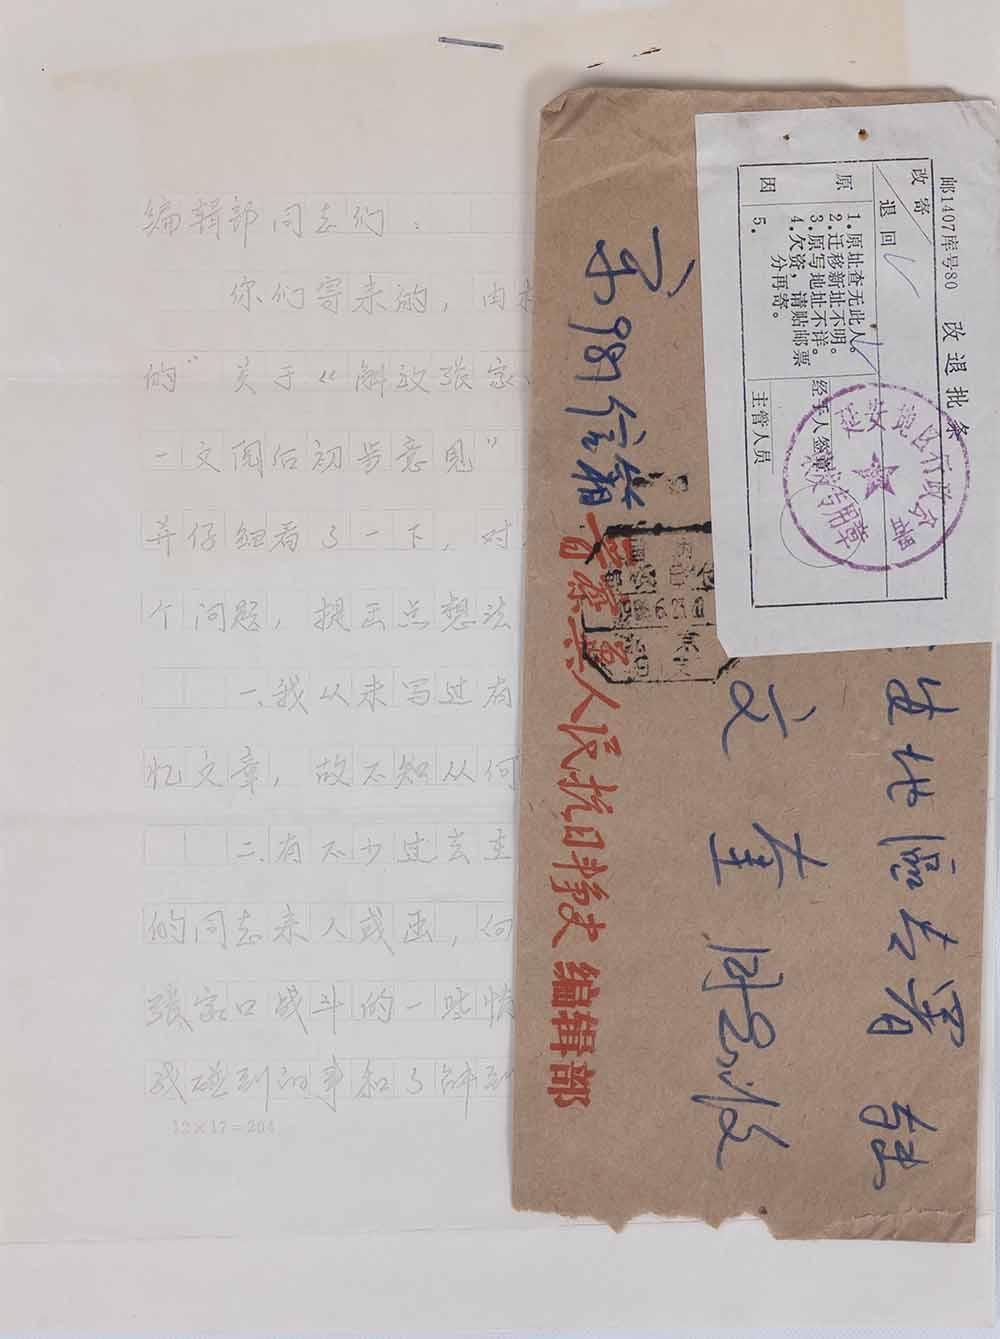 编辑部同志们：
你们寄来的，由
的"关于《解放张家
一文阅后初步意见"
并仔细看了一下，对
个问题，提出点想法
一、我从来写过有
忆文章，故不知从何
二、有不少过去
的同志来人或函，向
张家口战斗的一些情
我碰到的事和了解到
12×17=204
邮1407 库号80
改退批条
改寄
退回
原因
1.原址查无此人。
2.迁移新址不明。
3.原写地址不详。
4.欠资，请贴邮票 分再寄。
5.
经手人签章
主管人员
地區专署
文 同志收
信箱
晋察冀人民抗日斗争史编辑部